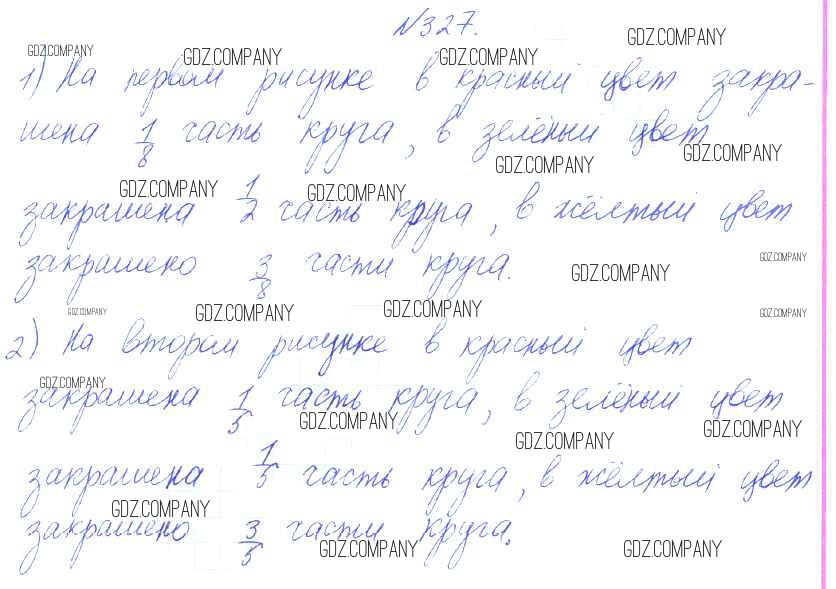 №327.
GDZ.COMPANY GDZ.COMPANY GDZ.COMPANY GDZ.COMPANY
1) На первом рисунке в красный цвет закра-
шена 1/8 часть круга, в зелёный цвет
GDZ.COMPANY GDZ.COMPANY
GDZ.COMPANY GDZ.COMPANY
закрашена 1/2 часть круга, в жёлтый цвет
закрашено 3/8 части круга.
GDZ.COMPANY GDZ.COMPANY
GDZ.COMPANY GDZ.COMPANY GDZ.COMPANY GDZ.COMPANY
2) На втором рисунке в красный цвет
GDZ.COMPANY
закрашена 1/5 часть круга, в зелёный цвет
GDZ.COMPANY GDZ.COMPANY GDZ.COMPANY
закрашена 1/5 часть круга, в жёлтый цвет
GDZ.COMPANY
закрашено 3/5 части круга.
GDZ.COMPANY GDZ.COMPANY